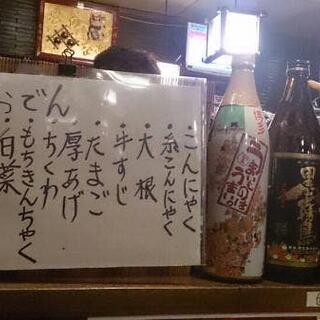 おでん
・こんにゃく
・糸こんにゃく
・大根
・牛すじ
・たまご
・厚あげ
・ちくわ
・もちきんちゃく
・白菜
黒霧島